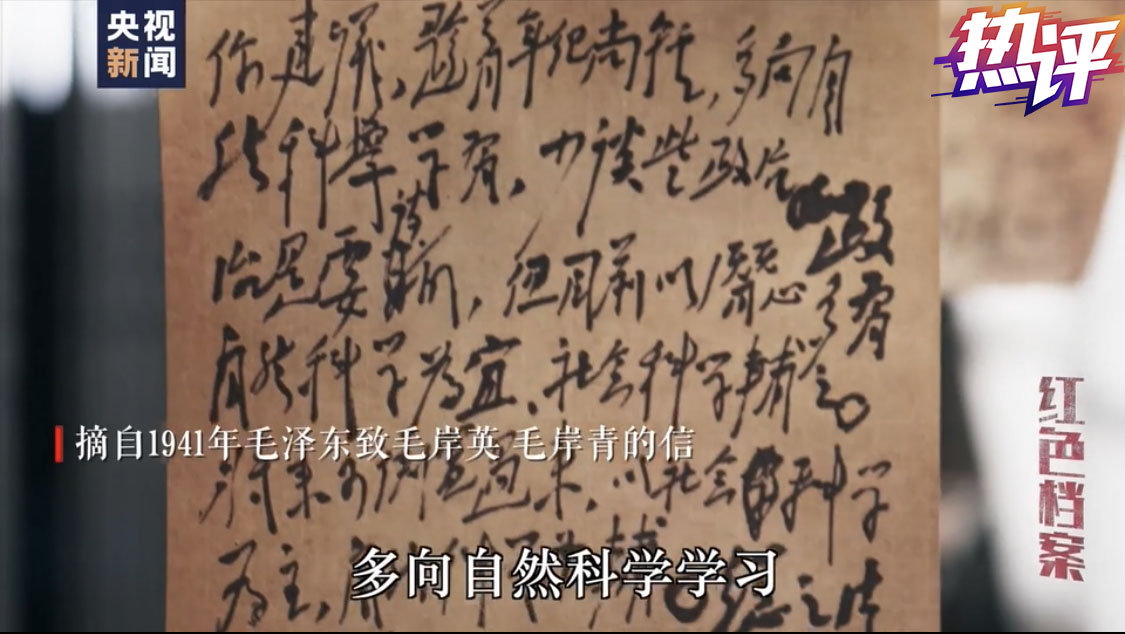 央视
新闻
热评
你建议,趁着年纪尚轻,多向自
然科学学习,少谈些政治,政
治是要谈的,但目前以潜心多习
自然科学为宜,社会科学辅之。
将来可倒置过来,以社会科学
为主,自然科学为辅。总之注
摘自1941年毛泽东致毛岸英 毛岸青的信
多向自然科学学习
红色档案